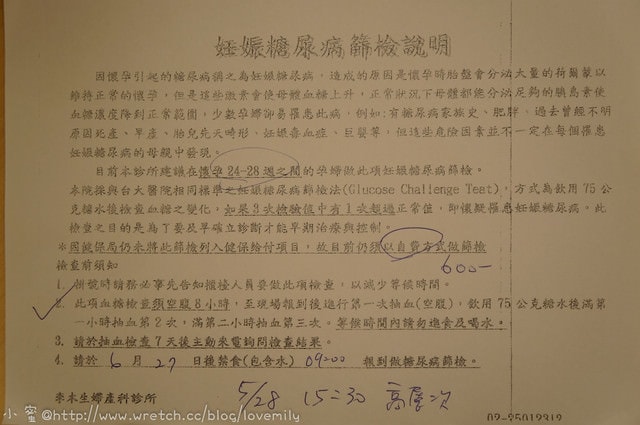 妊娠糖尿病篩檢說明
因懷孕引起的糖尿病稱之為妊娠糖尿病，造成的原因是懷孕時胎盤會分泌大量的荷爾蒙以
維持正常的懷孕，但是這些激素會使母體血糖上升，正常狀況下母體都能分泌足夠的胰島素使
血糖濃度降到正常範圍，少數孕婦卻易罹患此病，例如:有糖尿病家族史、肥胖、過去曾經不明
原因死產、早產、胎兒先天畸形、妊娠毒血症、巨嬰等，但這些危險因素並不一定在每個罹患
妊娠糖尿病的母親中發現。
目前本診所建議在懷孕24-28週之間的孕婦做此項妊娠糖尿病篩檢。
本院採與台大醫院相同標準之妊娠糖尿病篩檢法(Glucose Challenge Test)，方式為飲用75公
克糖水後檢查血糖之變化，如果3次檢驗值中有1次超過正常值，即懷疑罹患妊娠糖尿病。此
檢查之目的是為了要及早確立診斷才能早期治療與控制。
※因健保局仍未將此篩檢列入健保給付項目，故目前仍須以自費方式做篩檢
600-
檢查前須知
1. 掛號時請務必事先告知櫃檯人員要做此項檢查，以減少等候時間。
2. 此項血糖檢查須空腹8小時，至現場報到後進行第一次抽血(空腹)，飲用75公克糖水後滿第
一小時抽血第2次，滿第二小時抽血第三次。等候時間內請勿進食及喝水。
3. 請於抽血檢查7天後主動來電詢問檢查結果。
4. 請於 6 月 27 日 禁食(包含水) 09:00 報到做糖尿病篩檢。
禾木生婦產科診所
5/28 15:30 高層次
02-25012312
小蜜@http://www.wretch.cc/blog/lovemily